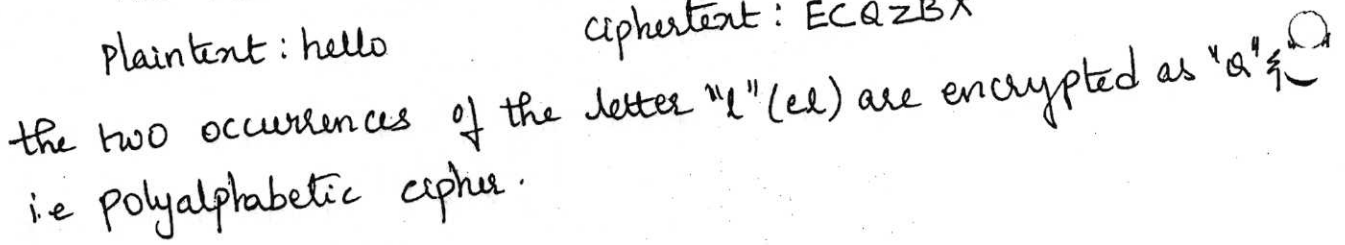 Plaintext : hello ciphertext : ECQZBX
the two occurrences of the letter "l" (el) are encrypted as "Q" &
i.e polyalphabetic cipher.